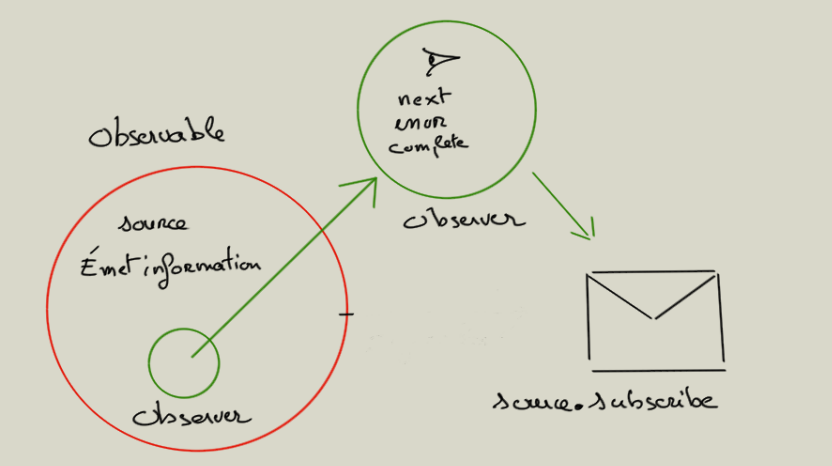 Observable
source
Émet information
Observer
next
error
complete
Observer
source.subscribe